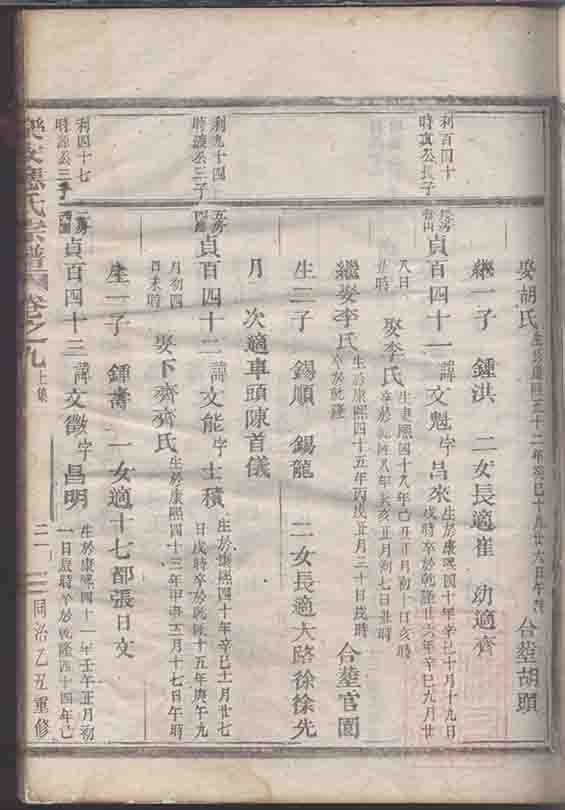 娶胡氏 生於康熙五十二年癸巳十月廿六日午時 合塟胡頭
繼一子 鍾洪 二女長適崔 幼適齊
利百四十
時真公長子
貞百四十一 諱文魁字昌來 生於康熙四十年辛巳十月十九日
戌時卒於乾隆廿六年辛巳九月廿
八日
娶李氏
卒於乾隆八年癸亥正月初七日丑時
繼娶李氏 生於康熙四十五年丙戌五月三十日戌時
卒於乾隆
合塟官園
生三子 錫順 錫龍 二女長適大路徐徐先
月 次適車頭陳首儀
利九十四
時源公三子
五房
貞百四十二 諱文能字士積 生於康熙四十年辛巳十一月廿七
日戌時卒於乾隆十五年庚午九
月初四
日未時
娶下齊齊氏 生於康熙四十三年甲申三月十七日午時
生一子 鍾壽 一女適十七都張日文
利四十七
時源公三子
貞百四十三 諱文徵字昌明 生於康熙四十一年壬午正月初
一日辰時卒於乾隆四十四年己
氏宗譜 卷之九 上集
同治乙丑重修